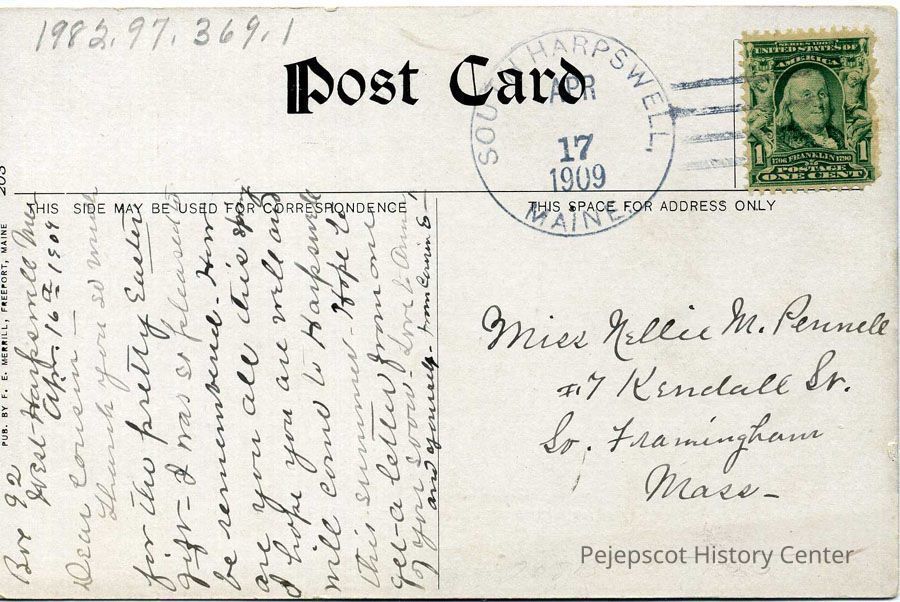 1982.97.369.1
Post Card
SOUTH HARPSWELL,
APR
17
1909
MAINE.
SERIES 1902
UNITED STATES OF
AMERICA
1 1706 FRANKLIN 1790 1
POSTAGE
ONE CENT
THIS SIDE MAY BE USED FOR CORRESPONDENCE
THIS SPACE FOR ADDRESS ONLY
203
PUB. BY F. E. MERRILL, FREEPORT, MAINE
Box 92
West Harpswell Me
Apr. 16th 1909
Dear Cousin —
Thank you so much
for the pretty Easter
gift — I was so pleased to
be remembered. How
are you all this spring
I hope you are well and
will come to Harpswell
this summer. Hope to
get a letter from one
of you soon — Love to
and yourself. from
Miss Nellie M. Pennell
#7 Kendall St.
So. Framingham
Mass —
Pejepscot History Center